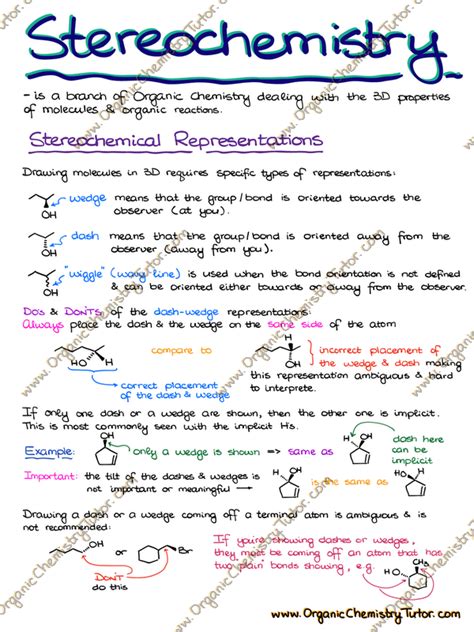 Stereochemistry
- is a branch of Organic Chemistry dealing with the 3D properties
of molecules & organic reactions.
Stereochemical Representations
Drawing molecules in 3D requires specific types of representations:
wedge means that the group/bond is oriented towards the
OH
observer (at you).
dash means that the group/bond is oriented away from the
OH
observer (away from you).
"wiggle" (wavy line) is used when the bond orientation is not defined
OH
& can be oriented either towards or away from the observer.
Do's & Don'ts of the dash-wedge representations:
Always place the dash & the wedge on the same side of the atom
HO H
compare to
OH
H
incorrect placement of
the wedge & dash making
this representation ambiguous & hard
to interprete.
correct placement
of the dash & wedge
If only one dash or a wedge are shown, then the other one is implicit.
This is most commonly seen with the implicit H's.
Example:
OH
only a wedge is shown => same as
H OH
dash here
can be
implicit
Important: the tilt of the dashes & wedges is
not important or meaningful
H OH
is the same as
HO H
Drawing a dash or a wedge coming off a terminal atom is ambiguous & is
not recommended:
OH
or
Br
Don't
do this
If you're showing dashes or wedges,
they must be coming off an atom that has
two plain bonds showing, e.g.
CH3
HO
www.OrganicChemistryTutor.com
www.OrganicChemistryTutor.com